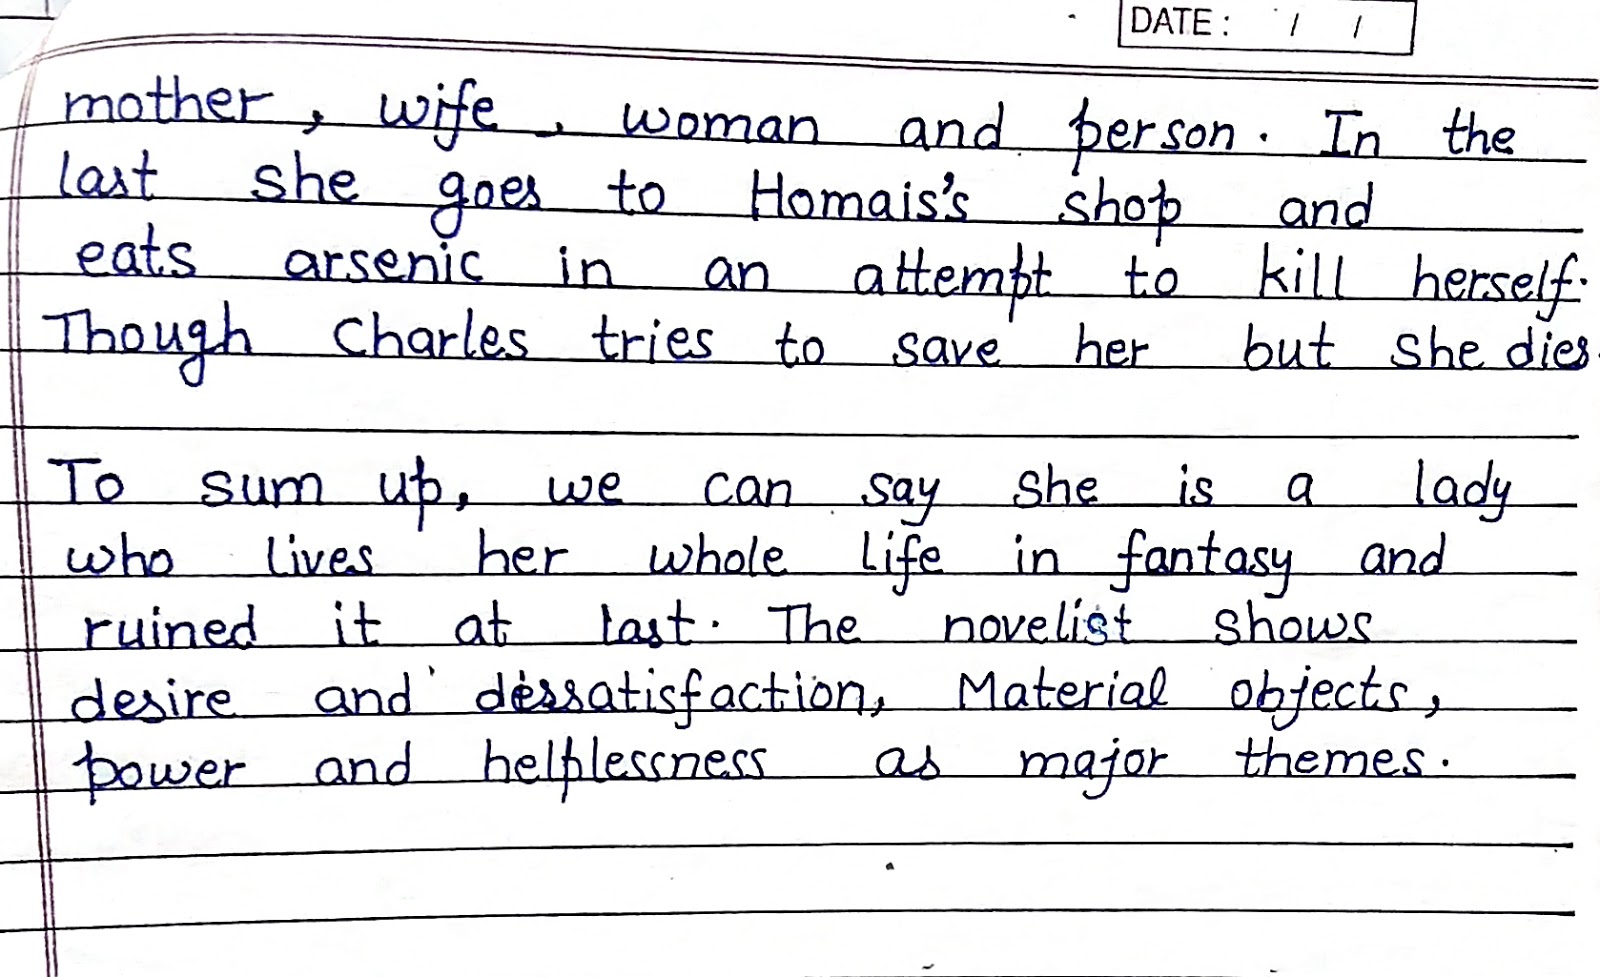 DATE: / /
mother, wife, woman and person. In the
last she goes to Homais's shop and
eats arsenic in an attempt to kill herself.
Though Charles tries to save her but she dies.
To sum up, we can say she is a lady
who lives her whole life in fantasy and
ruined it at last. The novelist shows
desire and dissatisfaction, Material objects,
power and helplessness as major themes.